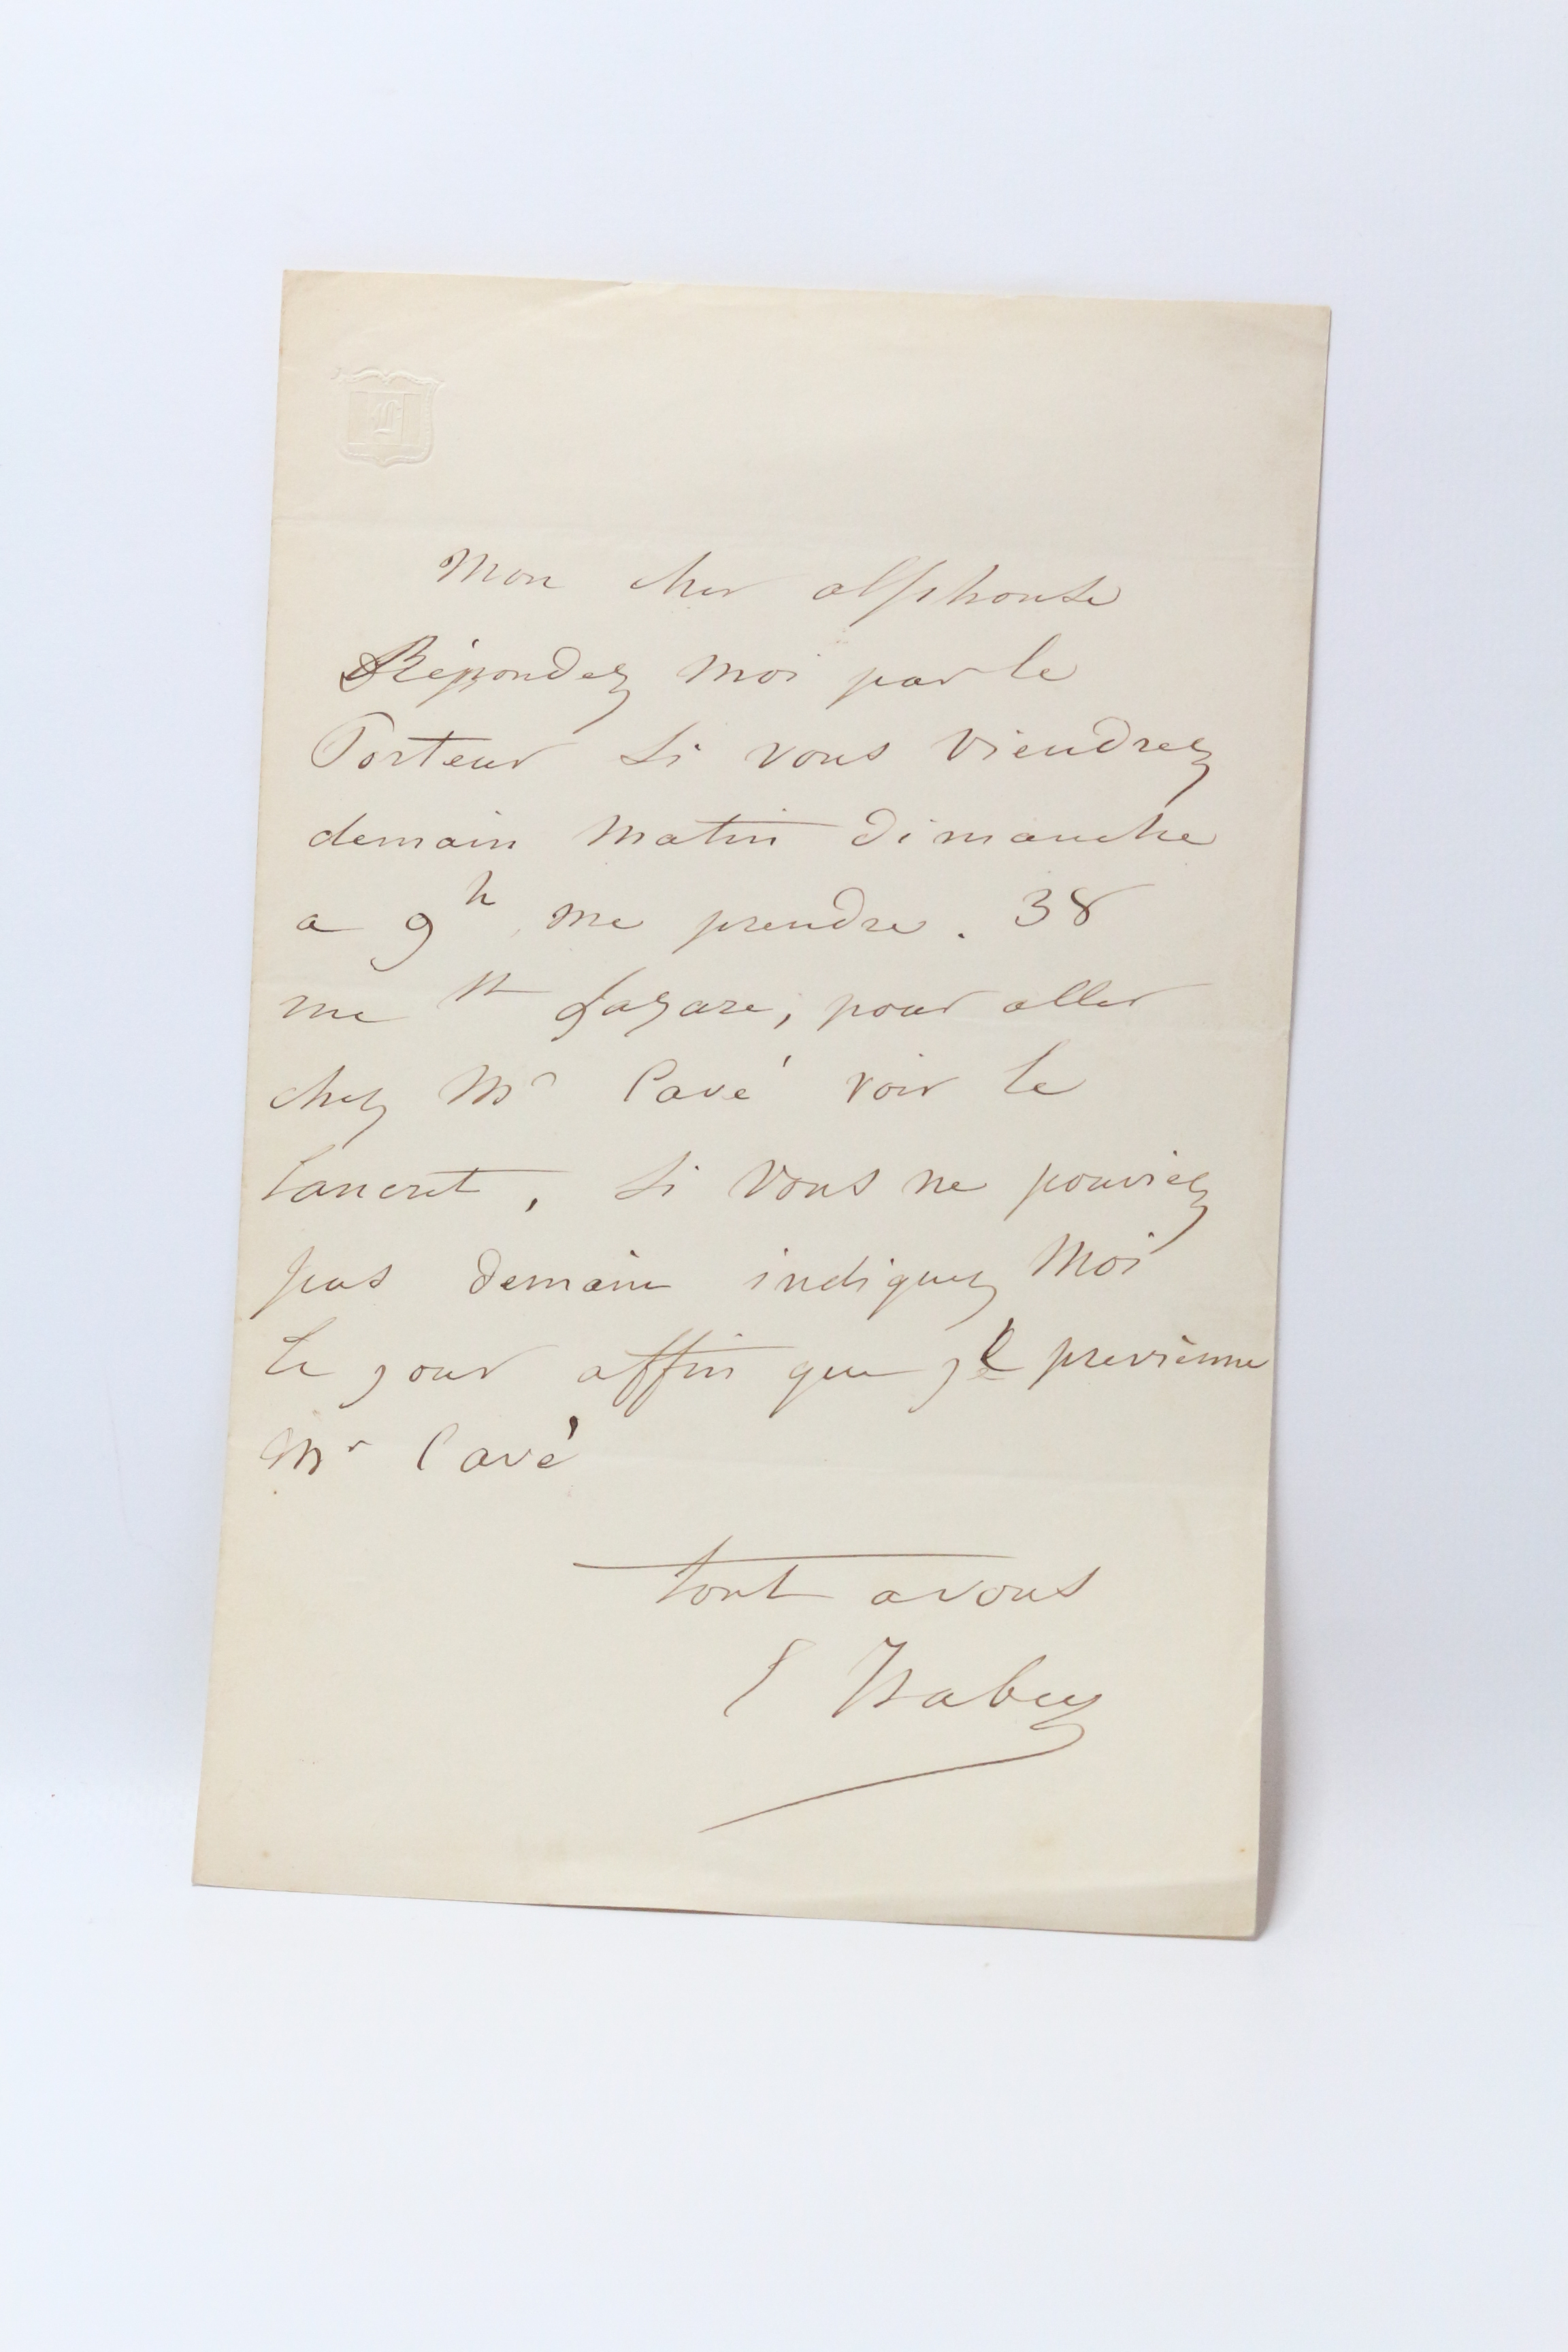 Mon cher alphonse
Répondez moi par le
Porteur si vous viendrez
demain matin dimanche
a 9h me prendre. 38
rue st Lazare, pour aller
chez Mr Cavé voir le
Lancret, si vous ne pouviez
pas demain indiquez moi
le jour affin que je previenne
Mr Cavé
tout a vous
E Isabey